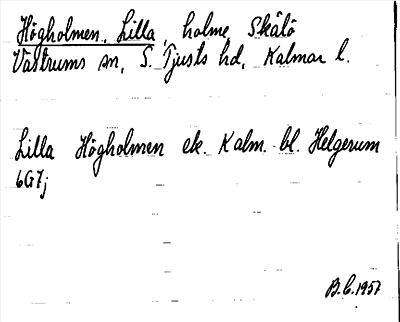 Högholmen, Lilla, holme, Skälö
Västrums sn, S. Tjusts hd, Kalmar l.
Lilla Högholmen ek. Kalm. bl. Helgerum
6G7j
B.C. 1957